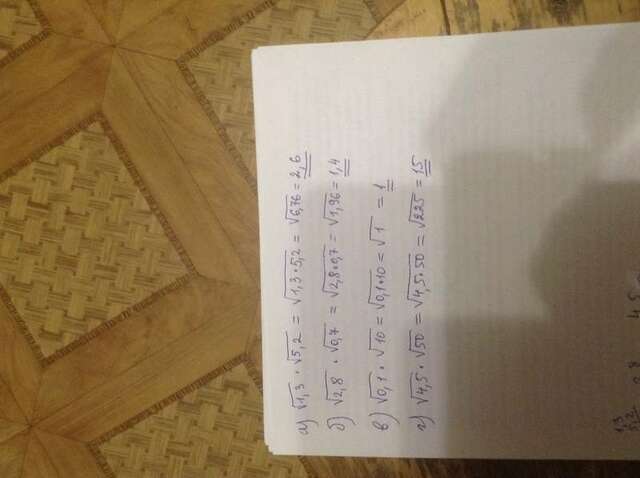 а) √1,3 · √5,2 = √1,3·5,2 = √6,76 = 2,6
б) √2,8 · √0,7 = √2,8·0,7 = √1,96 = 1,4
в) √0,1 · √10 = √0,1·10 = √1 = 1
г) √4,5 · √50 = √4,5·50 = √225 = 15